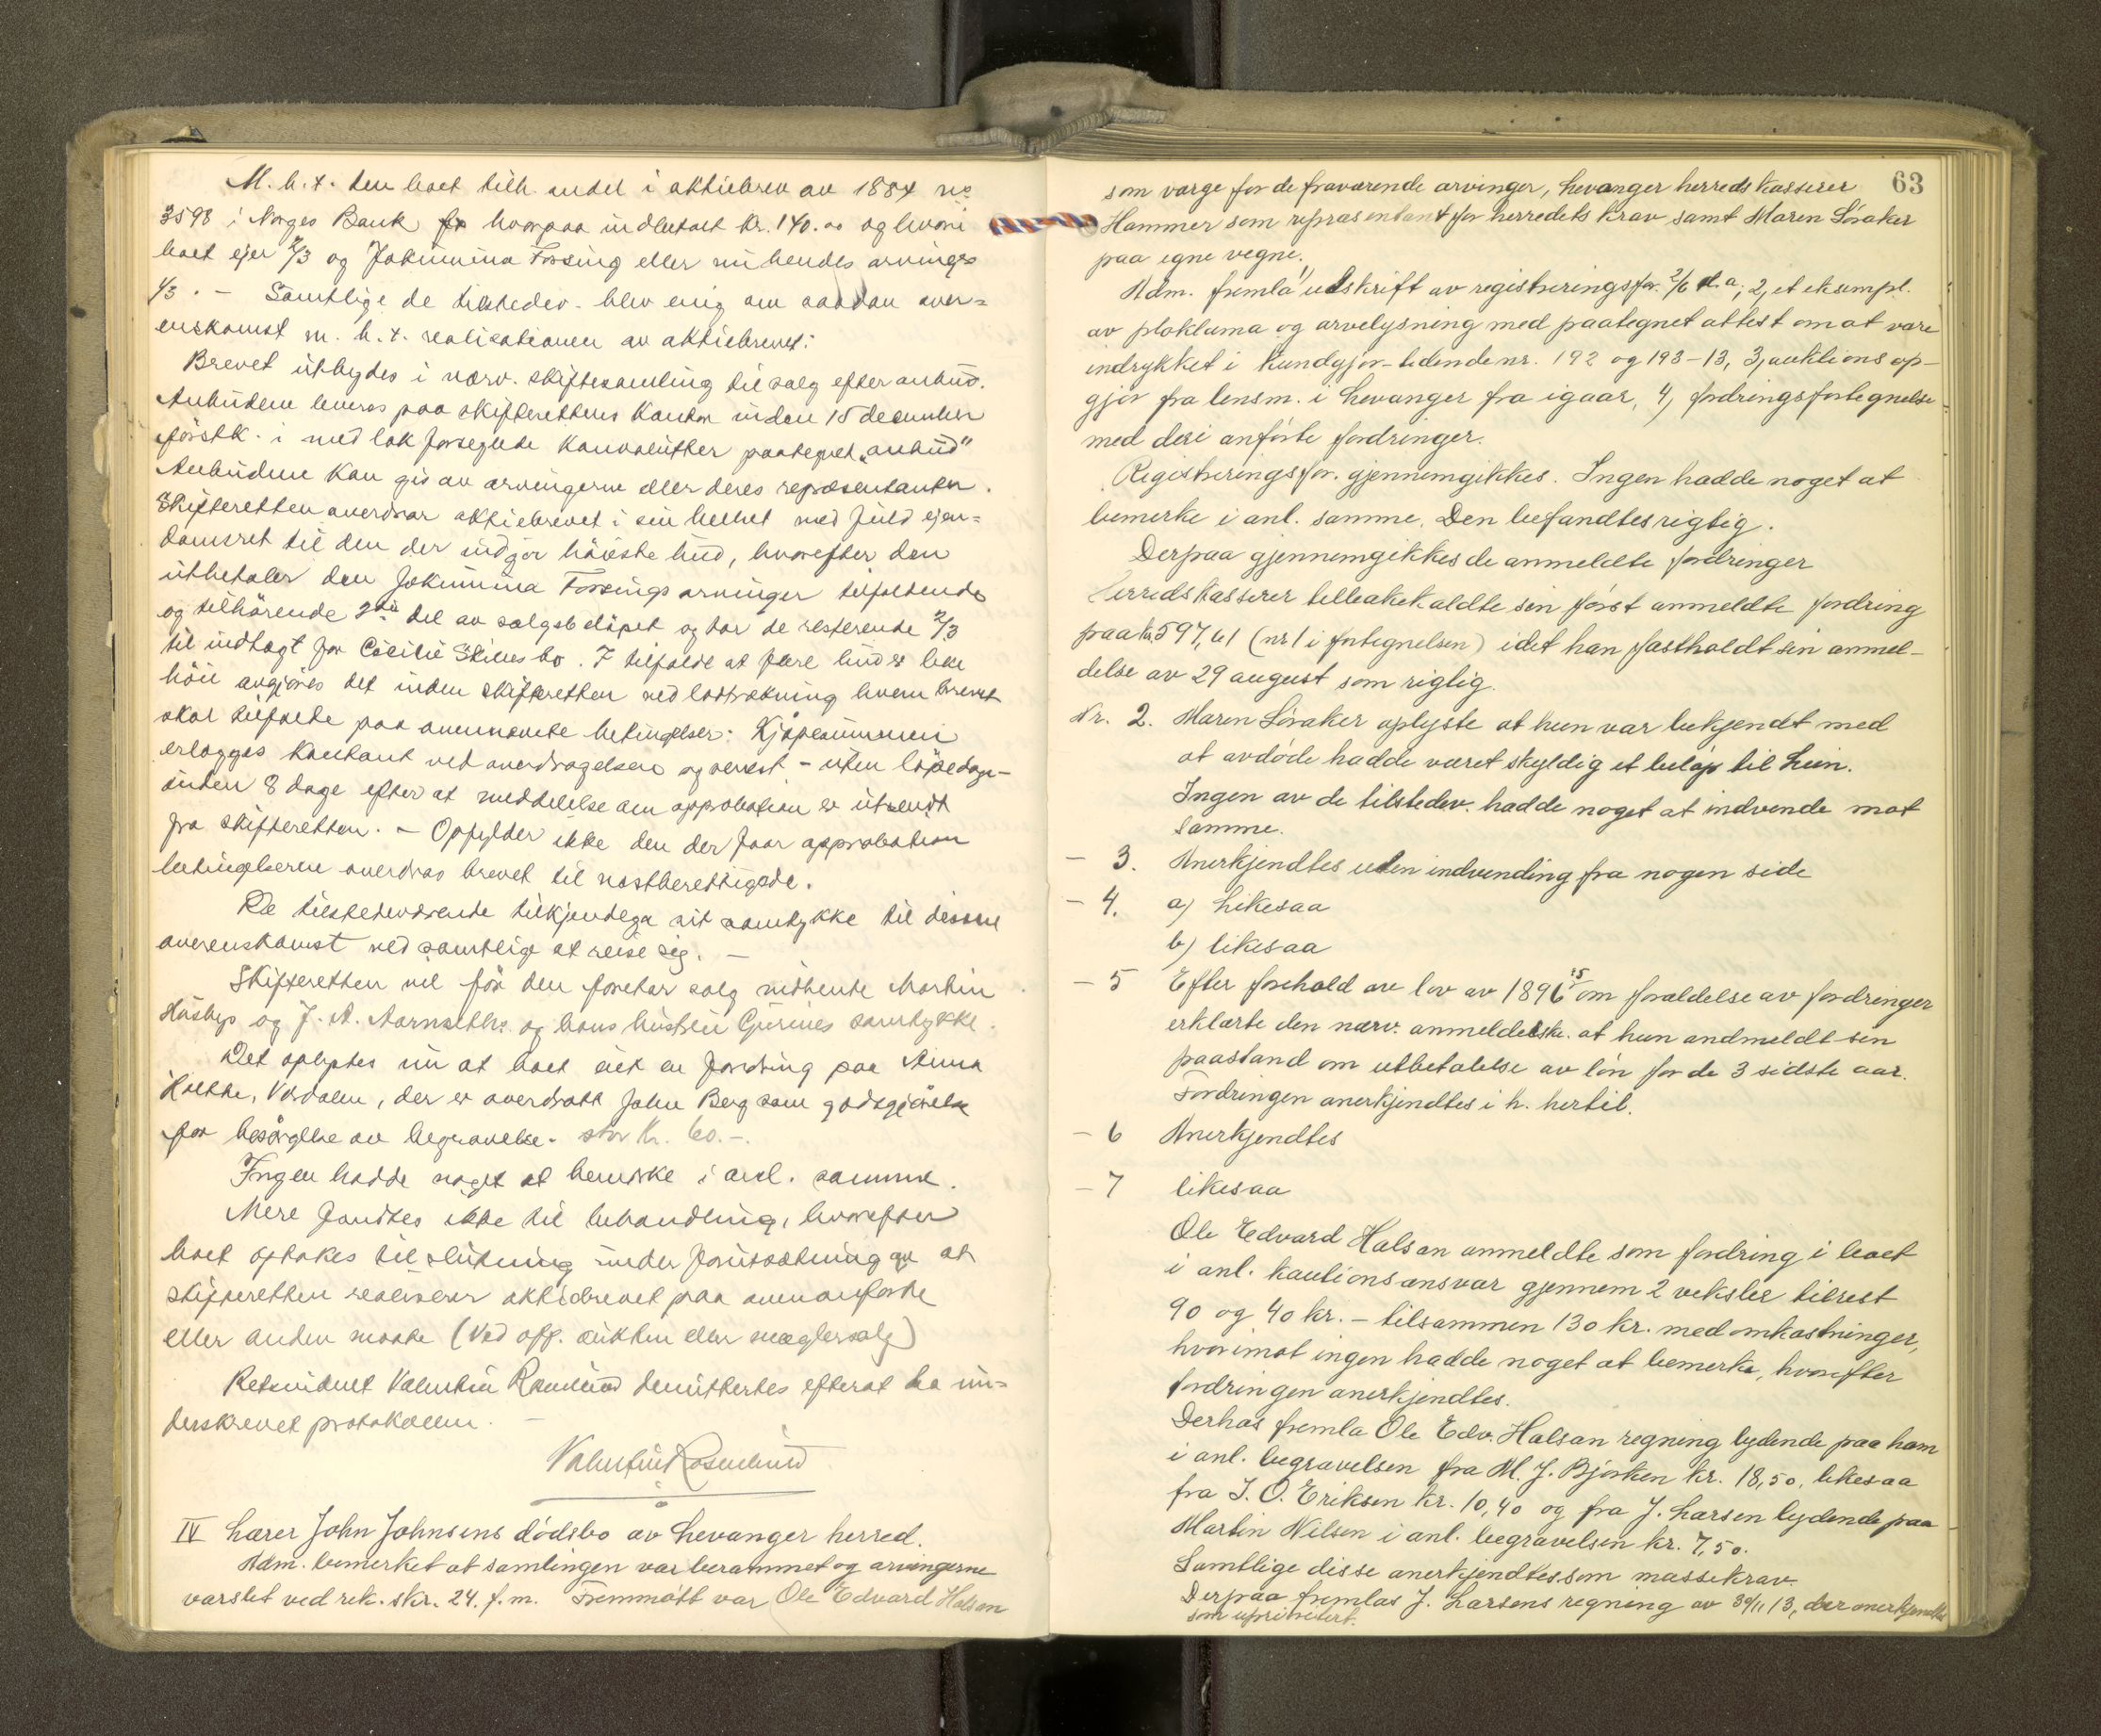 M.h.t. den boet tilh. andel i aktiebrev av 1884 no
3598 i Norges Bank hvorpaa indbetalt kr. 140.00 og hvori
boet ejer 2/3 og Jokumina Forsing eller nu hendes arvinger
1/3. – Samtlige de tilstedev. blev enig om saadan over=
enskomst m.h.t. realisationen av aktiebrevet:
Brevet utbydes i nærv. skiftesamling til salg efter anbud.
Anbudene leveres paa skifterettens kontor inden 15 december
førstk. i med lak forseglede konvolutter paategnet „anbud"
Anbudene kan gis av arvingerne eller deres repræsentanter.
Skifteretten overdrar aktiebrevet i sin helhet med fuld ejen=
domsret til den der indgir høieste bud, hvorefter den
utbetaler den Jokumina Forsings arvinger tilfaldende
og tilhørende del av salgsbeløpet og tar de resterende 2/3
til indtægt for Cicilie Skillesbo. I tilfælde at flere bud er like
høie avgjøres det inden skifteretten ved lodtrækning hvem brevet
skal tilfalde paa ovennævnte betingelser: Kjøpesummen
erlægges kontant ved overdragelsen og senest – uten løpedage –
inden 8 dage efter at meddelelse om approbation er utsendt
fra skifteretten. – Opfylder ikke den der faar approbation
betingelserne overdras brevet til næstberettigede.
De tilstedeværende tilkjendega sit samtykke til denne
overenskomst ved samtlige at reise sig. –
Skifteretten vil før den foretar salg indhente Martin
Husbys og J. A. Aarnseths og hans hustru Gurines samtykke.
Det oplystes nu at boet eiet en fordring paa Anna
Holthe, Værdalen, der er overdratt John Berg som godtgjørelse
for besørgelse av begravelse. stor kr. 60.–.
Ingen hadde noget at bemerke i anl. samme.
Mere fandtes ikke til behandling, hvorefter
boet optokes til slutning under forutsætning av at
skifteretten realiserer aktiebrevet paa ovenanførte
eller anden maate (ved off. auktion eller mæglersalg)
Retsvidnet Valentin Rosenlund demittertes efterat ha un=
derskrevet protokollen. –
Valentin Rosenlund
IV Lærer John Johnsens dødsbo av Levanger herred.
Adm. bemerket at samlingen var berammet og arvingerne
varslet ved rek. skr. 24. f.m. Fremmøtt var Ole Edvard Halsan
63
som værge for de fraværende arvinger, Levanger herredskasserer
Hammer som repræsentant for herredets krav samt Maren Søraker
paa egne vegne.
Adm. fremla 1) utskrift av registreringsfor. 2/6 d.a; 2, et eksempl.
av ploklama og arvelysning med paategnet attest om at være
indrykket i Kundgjør-tidende nr. 192 og 193–13, 3, auktionsop-
gjør fra lensm. i Levanger fra igaar, 4, fordringsfortegnelse
med deri anførte fordringer.
Registreringsfor. gjennemgikkes. Ingen hadde noget at
bemerke i anl. samme. Den befandtes rigtig.
Derpaa gjennemgikkes de anmeldte fordringer
Herredskasserer tilbakekaldte sin først anmeldte fordring
paa kr. 597,61 (nr 1 i fortegnelsen) idet han fastholdt sin anmel-
delse av 29 august som rigtig.
Nr. 2. Maren Søraker oplyste at hun var bekjendt med
at avdøde hadde været skyldig et beløp til Lein.
Ingen av de tilstedev. hadde noget at indvende mot
samme.
– 3. Anerkjendtes uten indvending fra nogen side
– 4. a) Likesaa
b) likesaa
– 5 Efter forehold av lov av 1896 om foraldelse av fordringer
erklærte den nærv. anmelderske at hun andmeldt sin
paastand om utbetalelse av løn for de 3 sidste aar.
Fordringen anerkjendtes i h. hertil.
– 6 Anerkjendtes
– 7 likesaa
Ole Edvard Halsan anmeldte som fordring i boet
i anl. kautionsansvar gjennem 2 veksler tilrest
90 og 40 kr. – tilsammen 130 kr. med omkostninger,
hvorimot ingen hadde noget at bemerke, hvorefter
fordringen anerkjendtes.
Derhos fremla Ole Edv. Halsan regning lydende paa ham
i anl. begravelsen fra M. J. Bjørken kr. 18,50, likesaa
fra J. O. Eriksen kr. 10,40 og fra J. Larsen lydende paa
Martin Nilsen i anl. begravelsen kr. 7,50.
Samtlige disse anerkjendtes som massekrav.
Derpaa fremlas J. Larsens regning av 30/11 13, der anerkjendtes
som uprioritert.